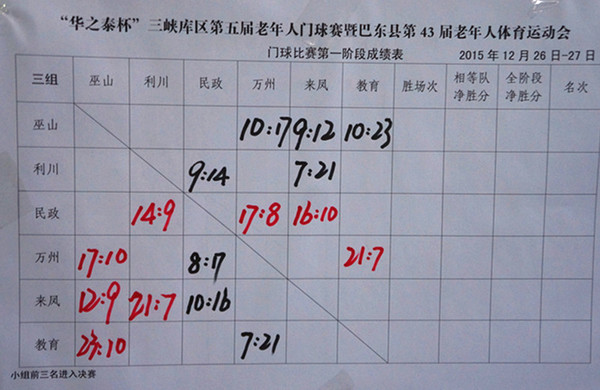 “华之泰杯”三峡库区第五届老年人门球赛暨巴东县第 43 届老年人体育运动会
门球比赛第一阶段成绩表 2015 年 12 月 26 日-27 日
三组 巫山 利川 民政 万州 来凤 教育 胜场次 相等队净胜分 全阶段净胜分 名次
巫山 10:17 9:12 10:23
利川 9:14 7:21
民政 14:9 17:8 16:10
万州 17:10 8:17 21:7
来凤 12:9 21:7 10:16
教育 23:10 7:21
小组前三名进入决赛